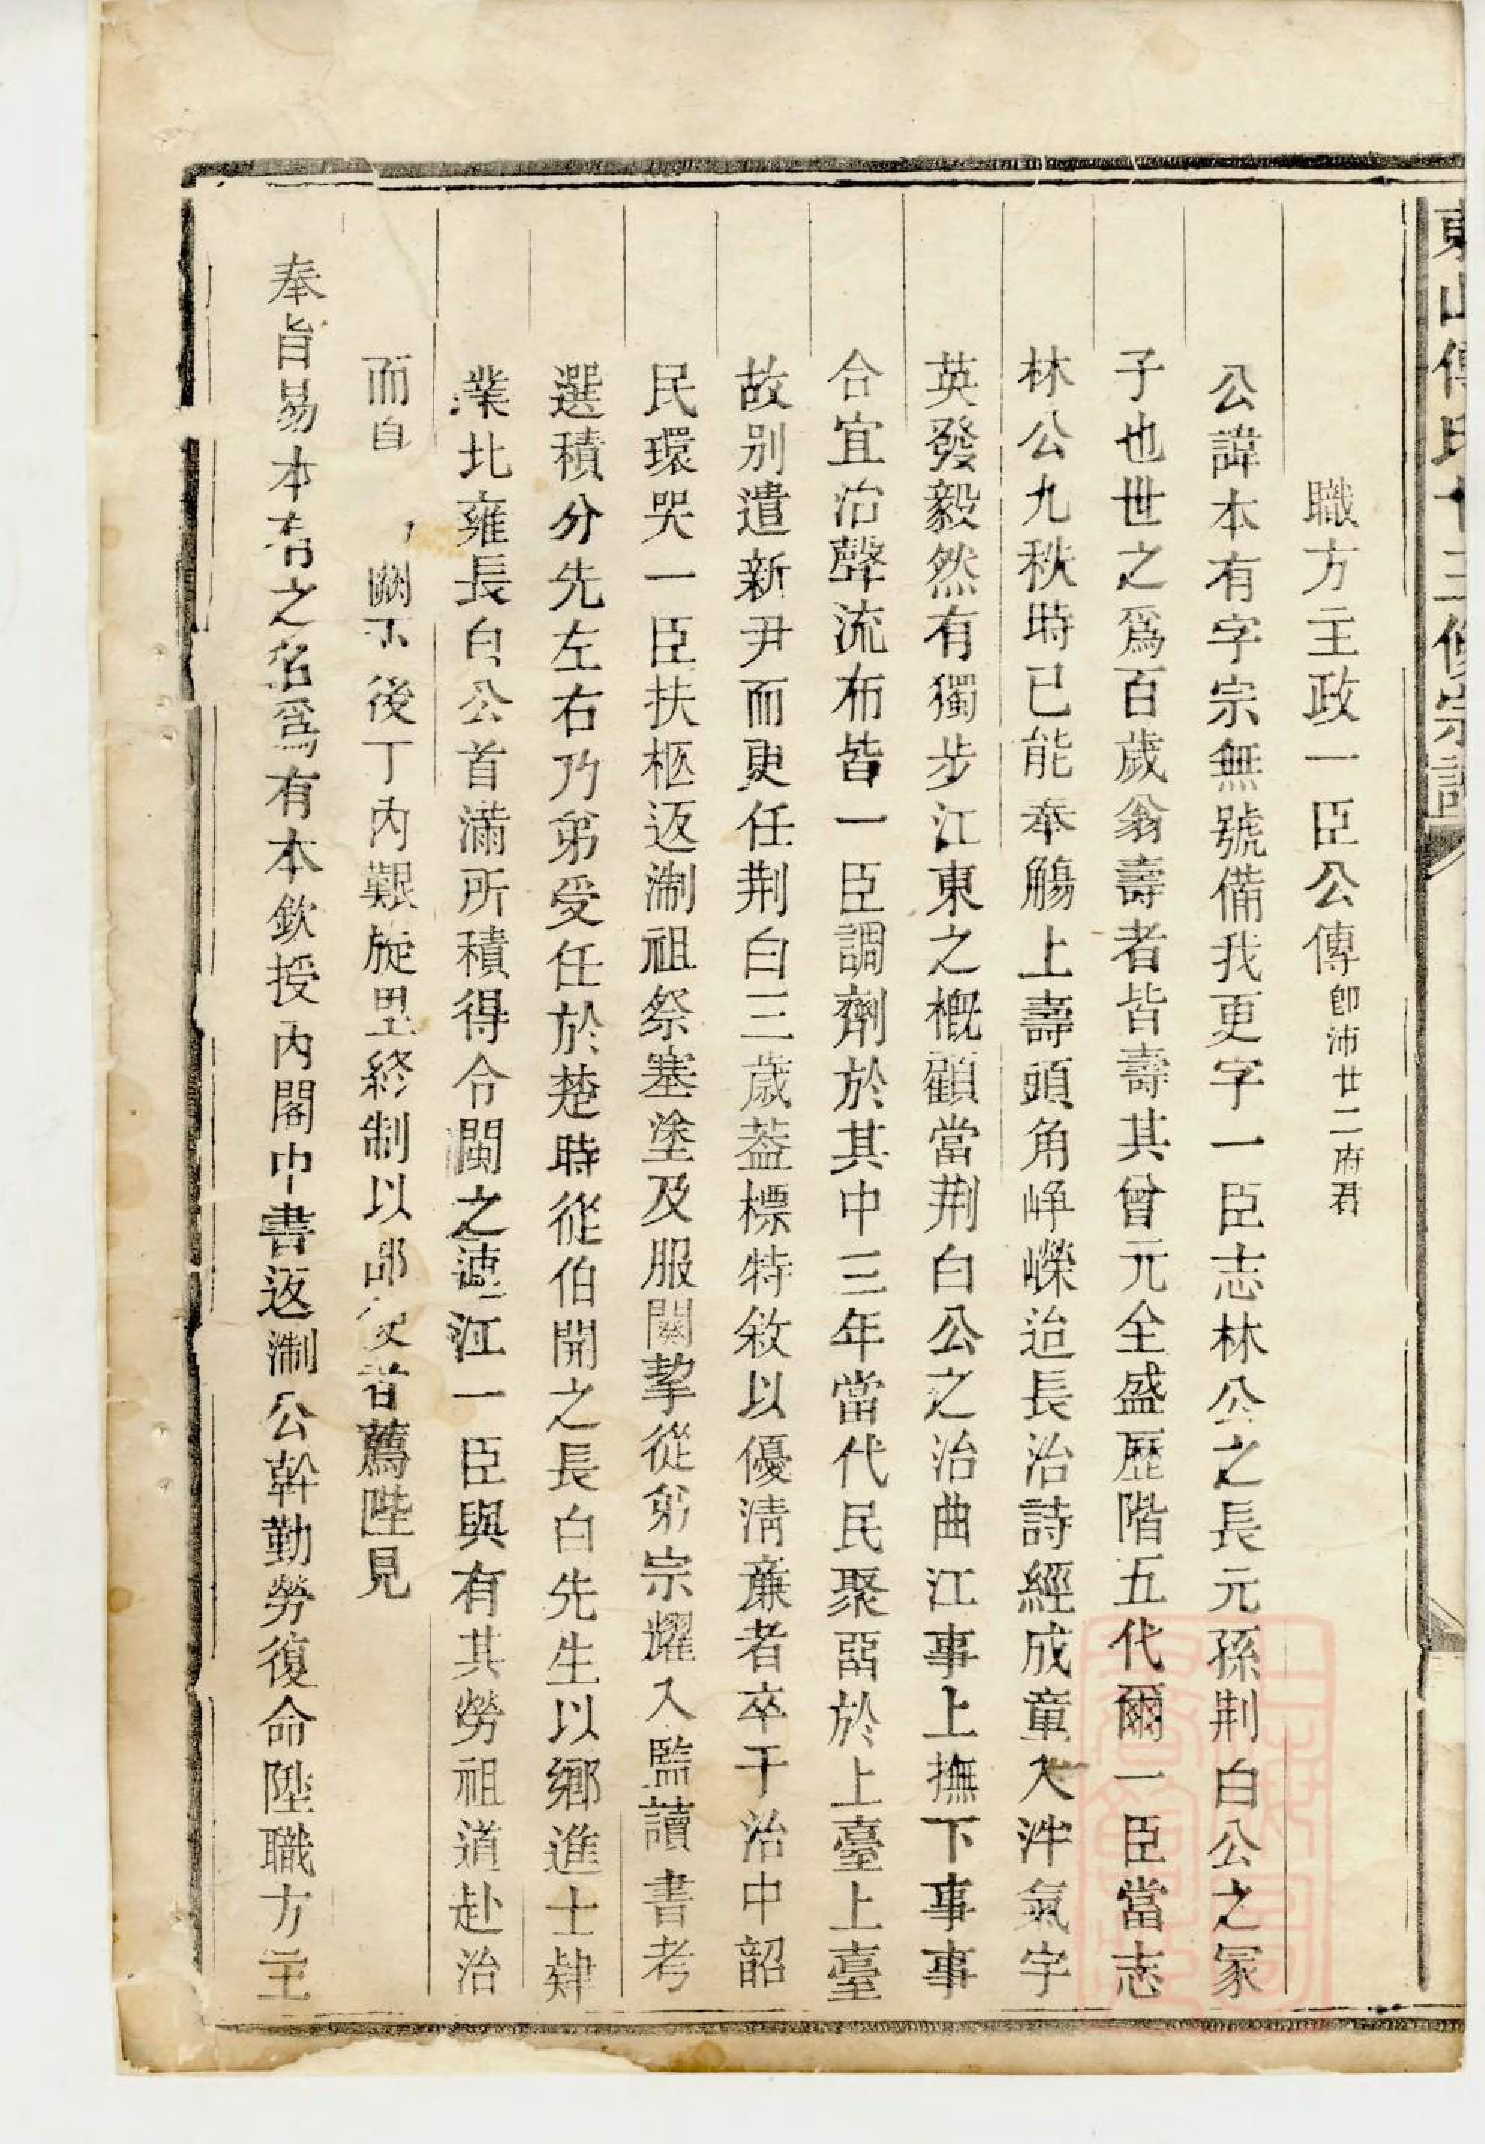 東山傅氏十三修宗譜
職方主政一臣公傳卽沛廿二府君
公諱本有字宗無號備我更字一臣志林公之長元孫荆白公之冢
子也世之爲百歲翁壽者皆壽其曾元全盛歷階五代爾一臣當志
林公九秩時已能奉觴上壽頭角崢嶸迨長治詩經成童入泮氣宇
英發毅然有獨步江東之概顧當荆白公之治曲江事上撫下事事
合宜治聲流布皆一臣調劑於其中三年當代民聚噩於上臺上臺
故别遣新尹而更任荆白三歲葢標特敘以優淸亷者卒于治中韶
民環哭一臣扶柩返淛祖祭塞塗及服闋挈從弟宗耀入監讀書考
選積分先左右乃弟受任於楚時從伯開之長白先生以鄉進士肄
業北雍長白公首滿所積得令閩之連江一臣與有其勞祖道赴治
而自 闕下後丁內艱旋里終制以 薦陛見
奉旨易本有之名爲有本欽授內閣中書返淛公幹勤勞復命陞職方主